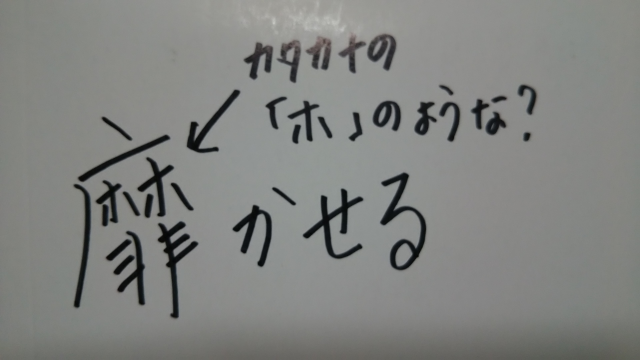 カタカナの
「ホ」のような?
靡かせる